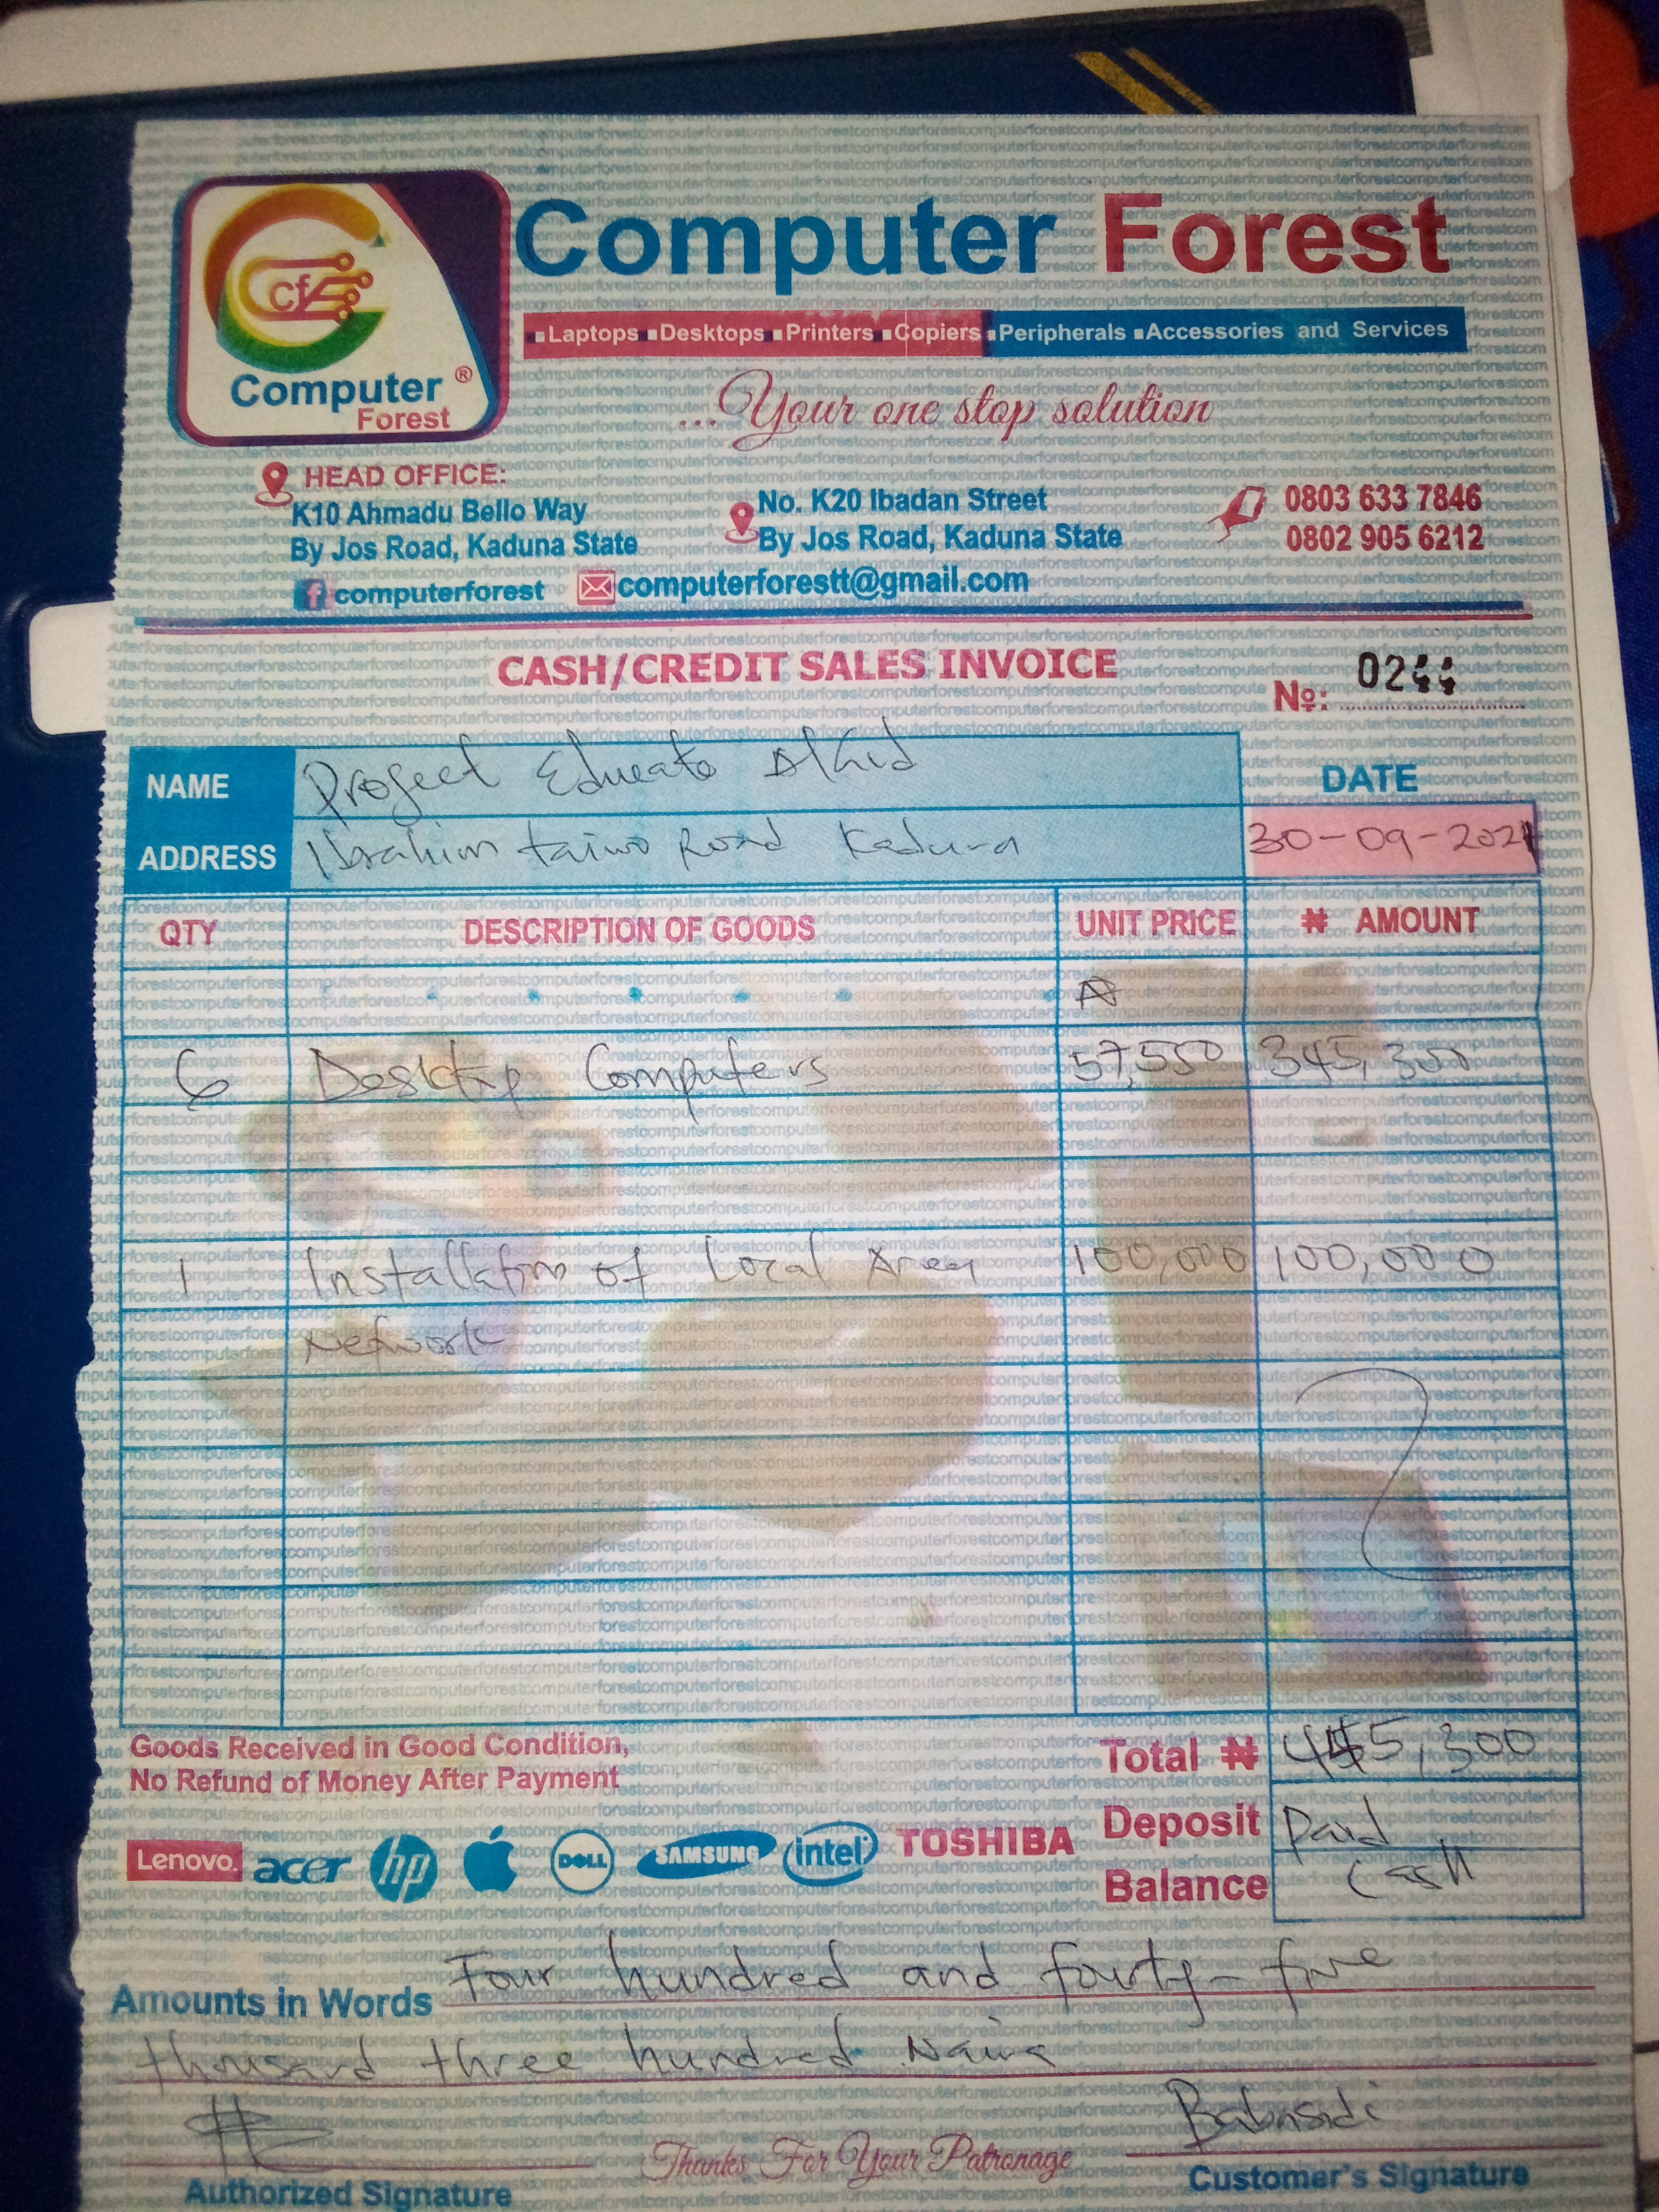 Computer Forest
cf
Computer ®
Forest
Laptops Desktops Printers Copiers Peripherals Accessories and Services
... Your one stop solution
HEAD OFFICE:
K10 Ahmadu Bello Way
By Jos Road, Kaduna State
No. K20 Ibadan Street
By Jos Road, Kaduna State
0803 633 7846
0802 905 6212
computerforest computerforestt@gmail.com
CASH/CREDIT SALES INVOICE
No: 0244
NAME Project Educate AKid
ADDRESS Ibrahim taiwo Road Kaduna
DATE
30-09-2021
QTY DESCRIPTION OF GOODS UNIT PRICE ₦ AMOUNT
₦
6 Desktop Computers 57,550 345,300
1 Installation of Local Area 100,000 100,000
Network
Goods Received in Good Condition,
No Refund of Money After Payment
Total ₦ 445,300
Deposit Paid
Balance Cash
Lenovo. acer hp DELL SAMSUNG intel TOSHIBA
Amounts in Words Four hundred and fourty-five
thousand three hundred Naira
Thanks For Your Patronage
Authorized Signature
Customer's Signature